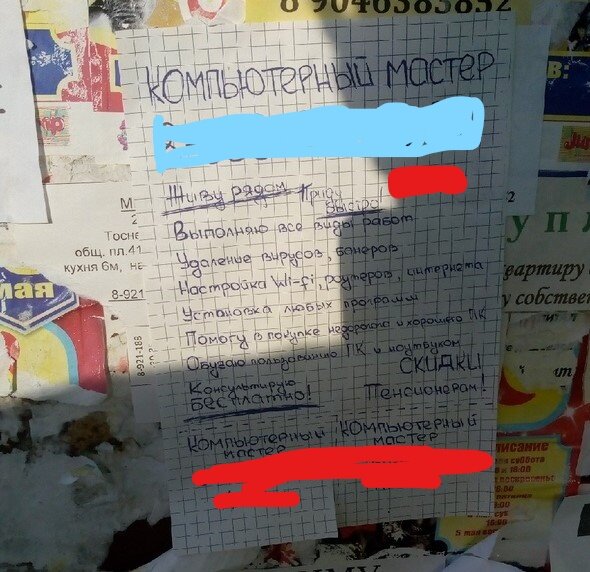 8 9046383852
КОМПЬЮТЕРНЫЙ МАСТЕР
Живу рядом Приду быстро!
Выполняю все виды работ
Удаление вирусов, банеров
Настройка Wi-fi, роутеров, интернета
Установка любых программ
Помогу в покупке недорогого и хорошего ПК
Обучаю пользованию ПК и ноутбуком
Консультирую БЕСПЛАТНО!
СКИДКИ Пенсионерам!
КОМПЬЮТЕРНЫЙ МАСТЕР
КОМПЬЮТЕРНЫЙ МАСТЕР
Тосне
общ. пл.41
кухня 6м, не
8-921
8-921-188
мая
В:
2
у п л
вартиру
у собствен